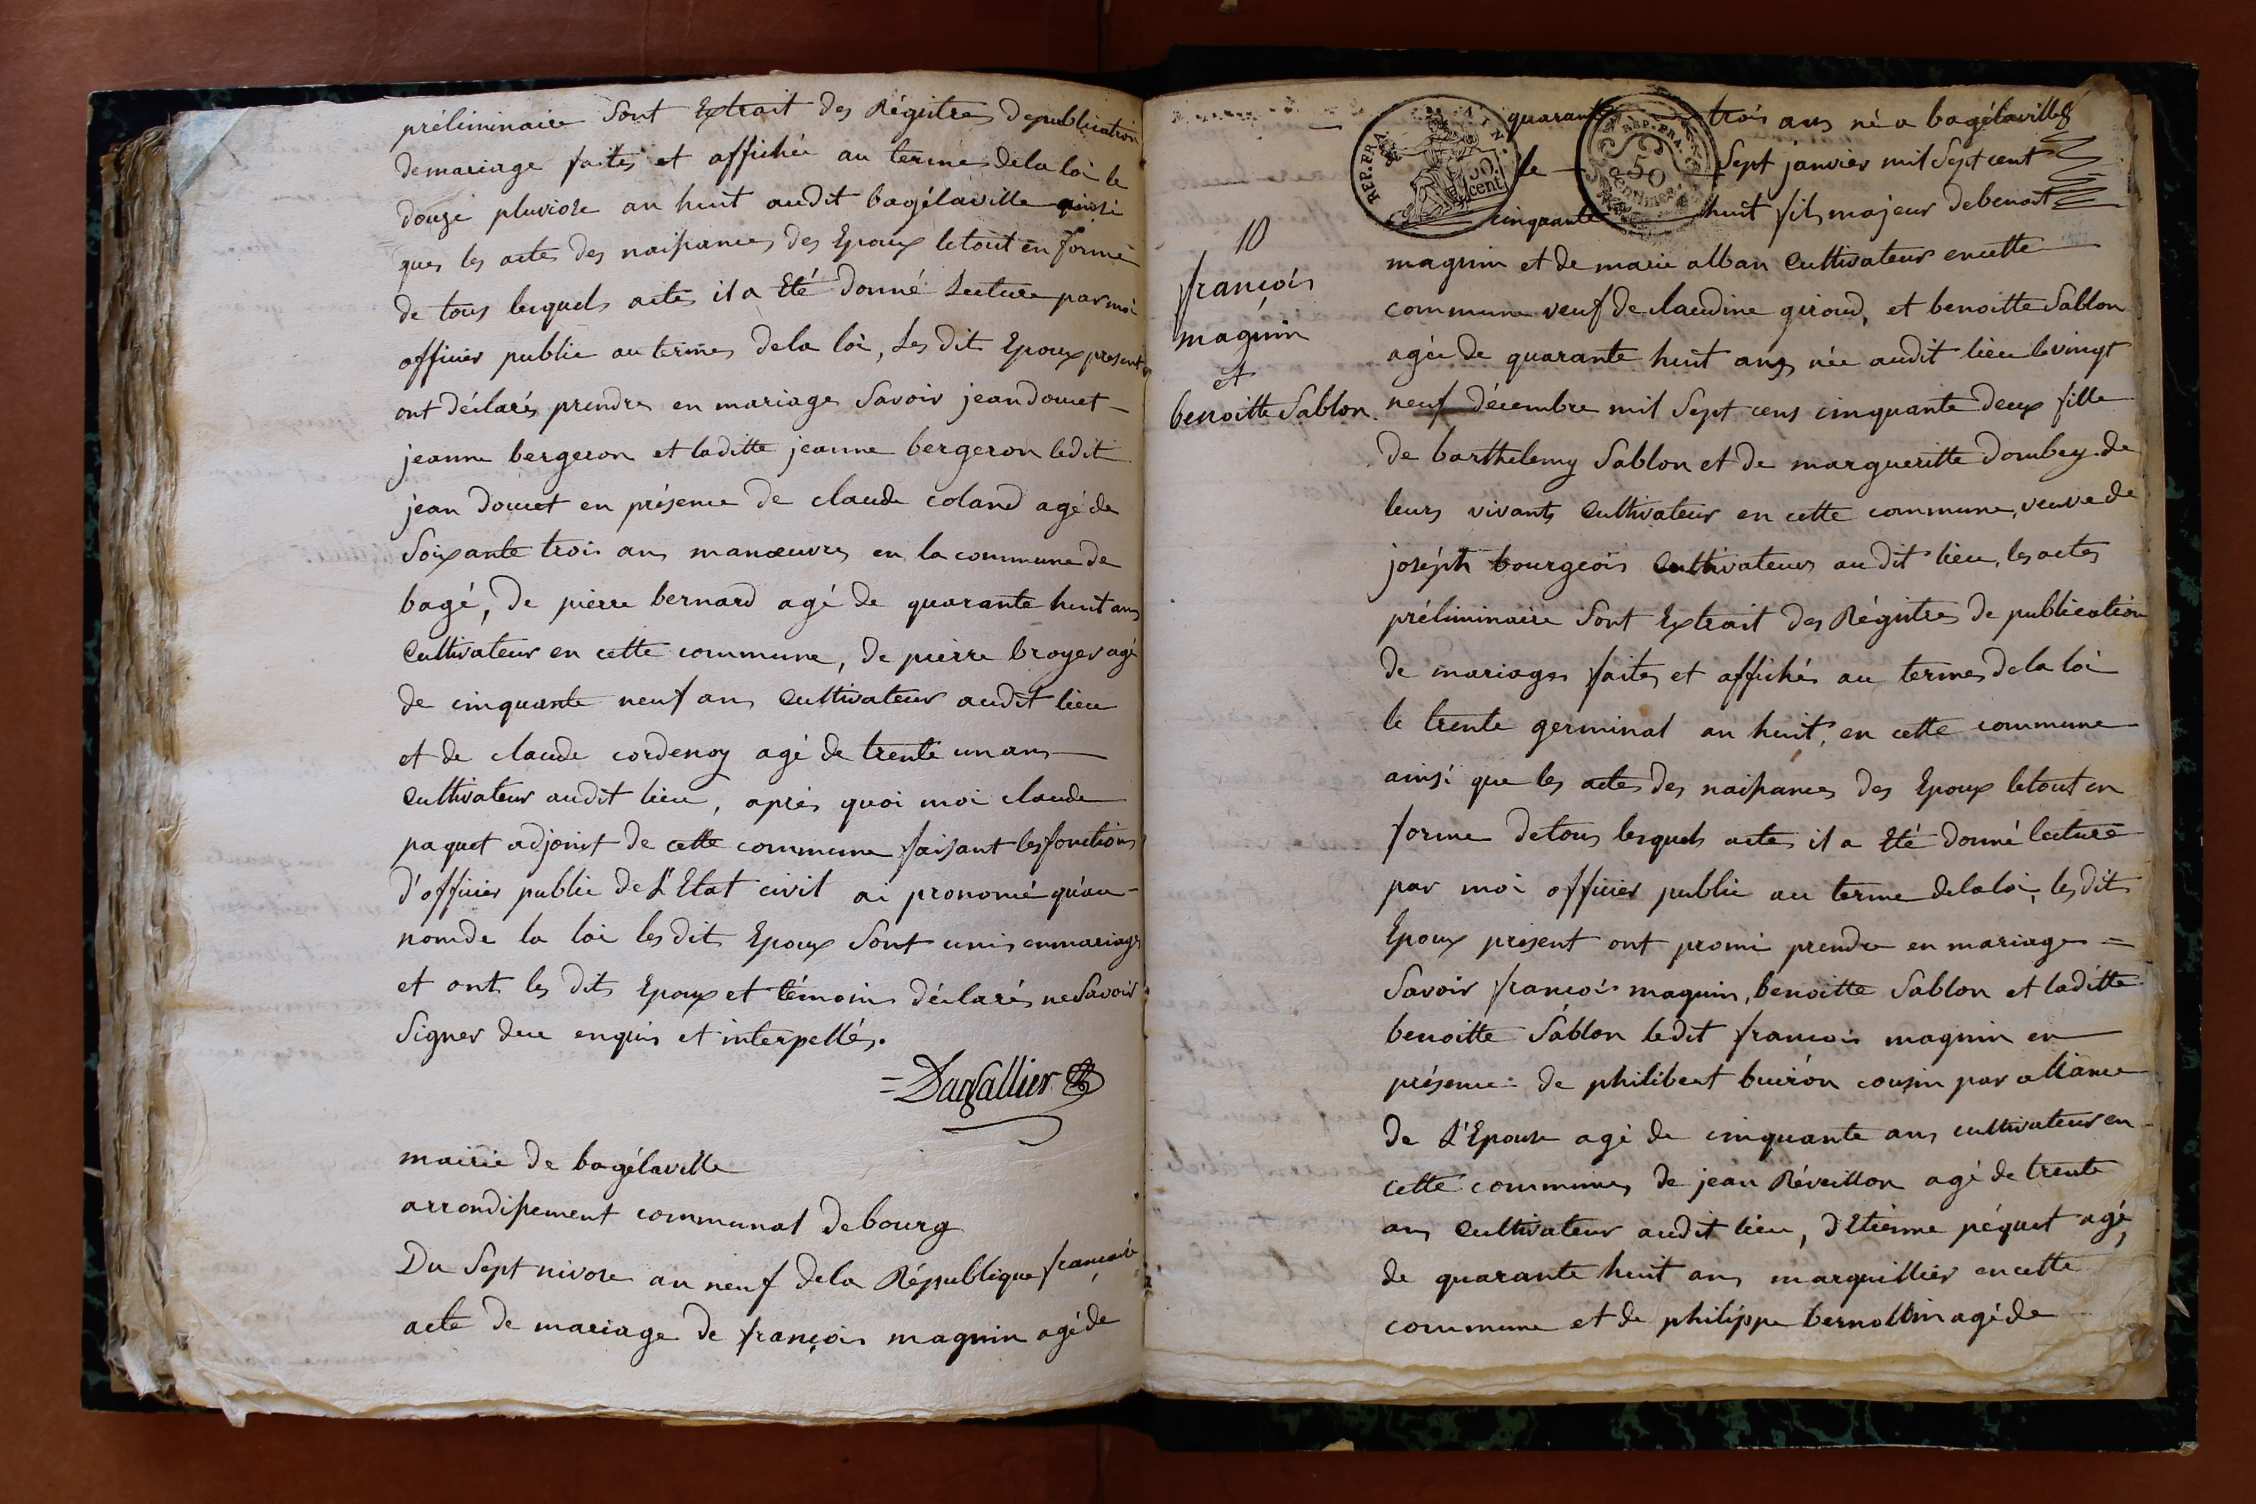 préliminaire Sont Extrait des Régistres depublication
demariage faites et affichée au termes dela loi le
douze pluviose an huit audit bagélaville ainsi
ques les actes des naissances des Epoux letout en forme
de tous lesquels actes il a Eté donné Lecture par moi
officier public au termes dela loi, Les dit Epoux present
ont déclarés prendre en mariage Savoir jean doucet
jeanne bergeron et laditte jeanne bergeron ledit
jean doucet en présence de claude coland agé de
Soixante trois ans manœuvres en la commune de
bagé, de pierre bernard agé de quarante huit ans
Cultivateur en cette commune, de pierre broyer agé
de cinquante neuf ans Cultivateur audit lieu
et de claude cordenoy agé de trente un ans
Cultivateur audit lieu, après quoi moi claude
paquet adjoint de cette commune faisant les fonctions
d'officier public de L'Etat civil ai prononcé qu'au
nom de la loi les dits Epoux Sont unis en mariage
et ont les dits Epoux et témoins déclarés ne Savoir
Signer due enquis et interpellés.
=Dagallier
mairie de bagélaville
arrondissement communal de bourg
Du Sept nivose an neuf dela République francaise
acte de mariage de françois magnin agé de
10
françois
magnin
et
benoitte Sablon
REP. FRA. AIN.
50 cent
REP. FRA.
50
centimes
quarante trois ans né a bagélaville
le Sept janvier mil Sept cent
cinquante huit fils majeur de benoit
magnin et de marie alban Cultivateur en cette
commune veuf de claudine giroud, et benoitte Sablon
agée de quarante huit ans née audit lieu le vingt
neuf décembre mil Sept cens cinquante deux fille
de barthelemy Sablon et de margueritte dombey de
leurs vivants Cultivateur en cette commune, veuve de
joséph bourgeois Cultivateurs au dit lieu, les actes
préliminaire Sont Extrait des Régistres de publication
de mariages faites et affichés au termes dela loi
le trente germinal an huit, en cette commune
ainsi que les actes des naissances des Epoux letout en
forme detous lesquels actes il a Eté donné lecture
par moi officier public au terme dela loi, les dit
Epoux présent ont promi prendre en mariages =
Savoir francois magnin, benoitte Sablon et laditte
benoitte Sablon ledit francois magnin en
présence de philibert buiron cousin par alliance
de L'Epouse agé de cinquante ans cultivateur en
cette commune, de jean Réveillon agé de trente
ans Cultivateur audit lieu, d'Etienne péquet agé,
de quarante huit ans marguillier en cette
commune et de philippe bernollin agé de